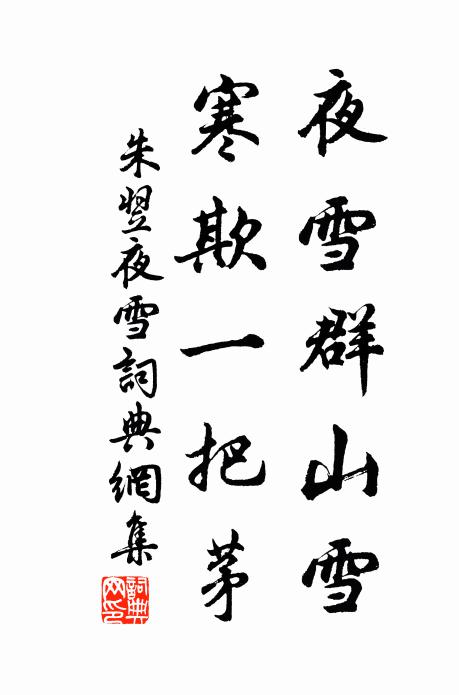 夜雪群山雪
寒欺一把茅
朱翌夜雪詞典網集
詞典網印